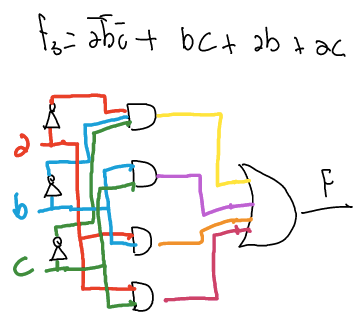 f₃ = a̅b̅c̅ + bc + ab + ac
a
b
c
F